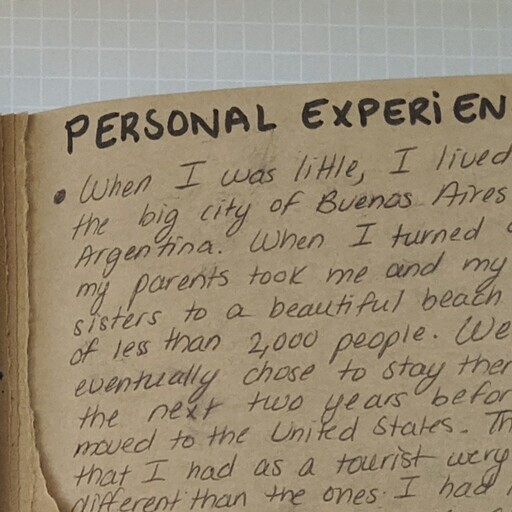 PERSONAL EXPERiEN
• When I was little, I lived
the big city of Buenos Aires
Argentina. When I turned
my parents took me and my
sisters to a beautiful beach
of less than 2,000 people. We
eventually chose to stay ther
the next two years befor
moved to the United States. Th
that I had as a tourist were
different than the ones I had